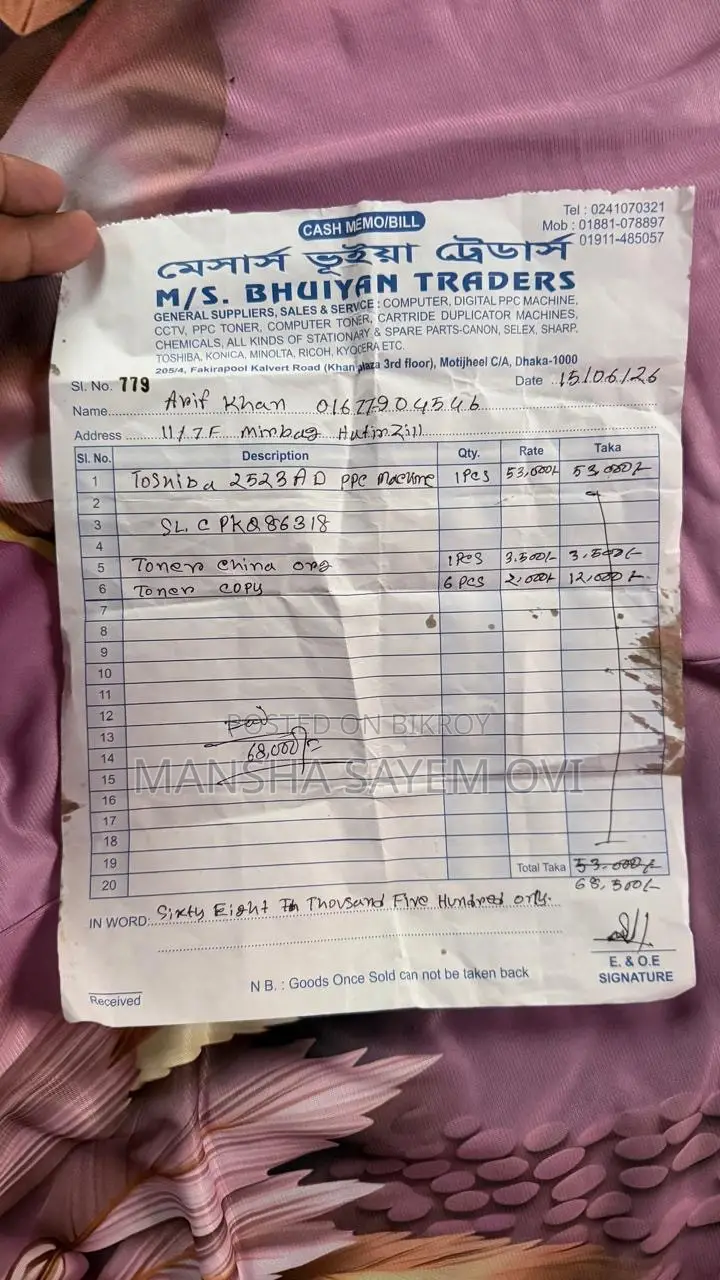 CASH MEMO/BILL
Tel : 0241070321
Mob : 01881-078897
01911-485057
মেসার্স ভূইয়া ট্রেডার্স
M/S. BHUIYAN TRADERS
GENERAL SUPPLIERS, SALES & SERVICE : COMPUTER, DIGITAL PPC MACHINE,
CCTV, PPC TONER, COMPUTER TONER, CARTRIDE DUPLICATOR MACHINES,
CHEMICALS, ALL KINDS OF STATIONARY & SPARE PARTS-CANON, SELEX, SHARP,
TOSHIBA, KONICA, MINOLTA, RICOH, KYOCERA ETC.
205/4, Fakirapool Kalvert Road (Khan plaza 3rd floor), Motijheel C/A, Dhaka-1000
Sl. No. 779 Date 15/06/26
Name Arif Khan 01677904546
Address 11/7F Mirbag Hatirzill
Sl. No. Description Qty. Rate Taka
1 Toshiba 2523AD PPC Machine 1 Pcs 53,000/- 53,000/-
2
3 SL. C PKQ86318
4
5 Toner China org 1 Pcs 3.500/- 3.500/-
6 Toner COPY 6 Pcs 2,000/- 12,000/-
7
8
9
10
11
12
13 POSTED ON BIKROY
14 68,000/=
15 MANSHA SAYEM OVI
16
17
18
19 Total Taka 53.000/-
20 68,500/-
IN WORD: Sixty Eight Th Thousand Five Hundred only.
E. & O.E
SIGNATURE
N B. : Goods Once Sold can not be taken back
Received